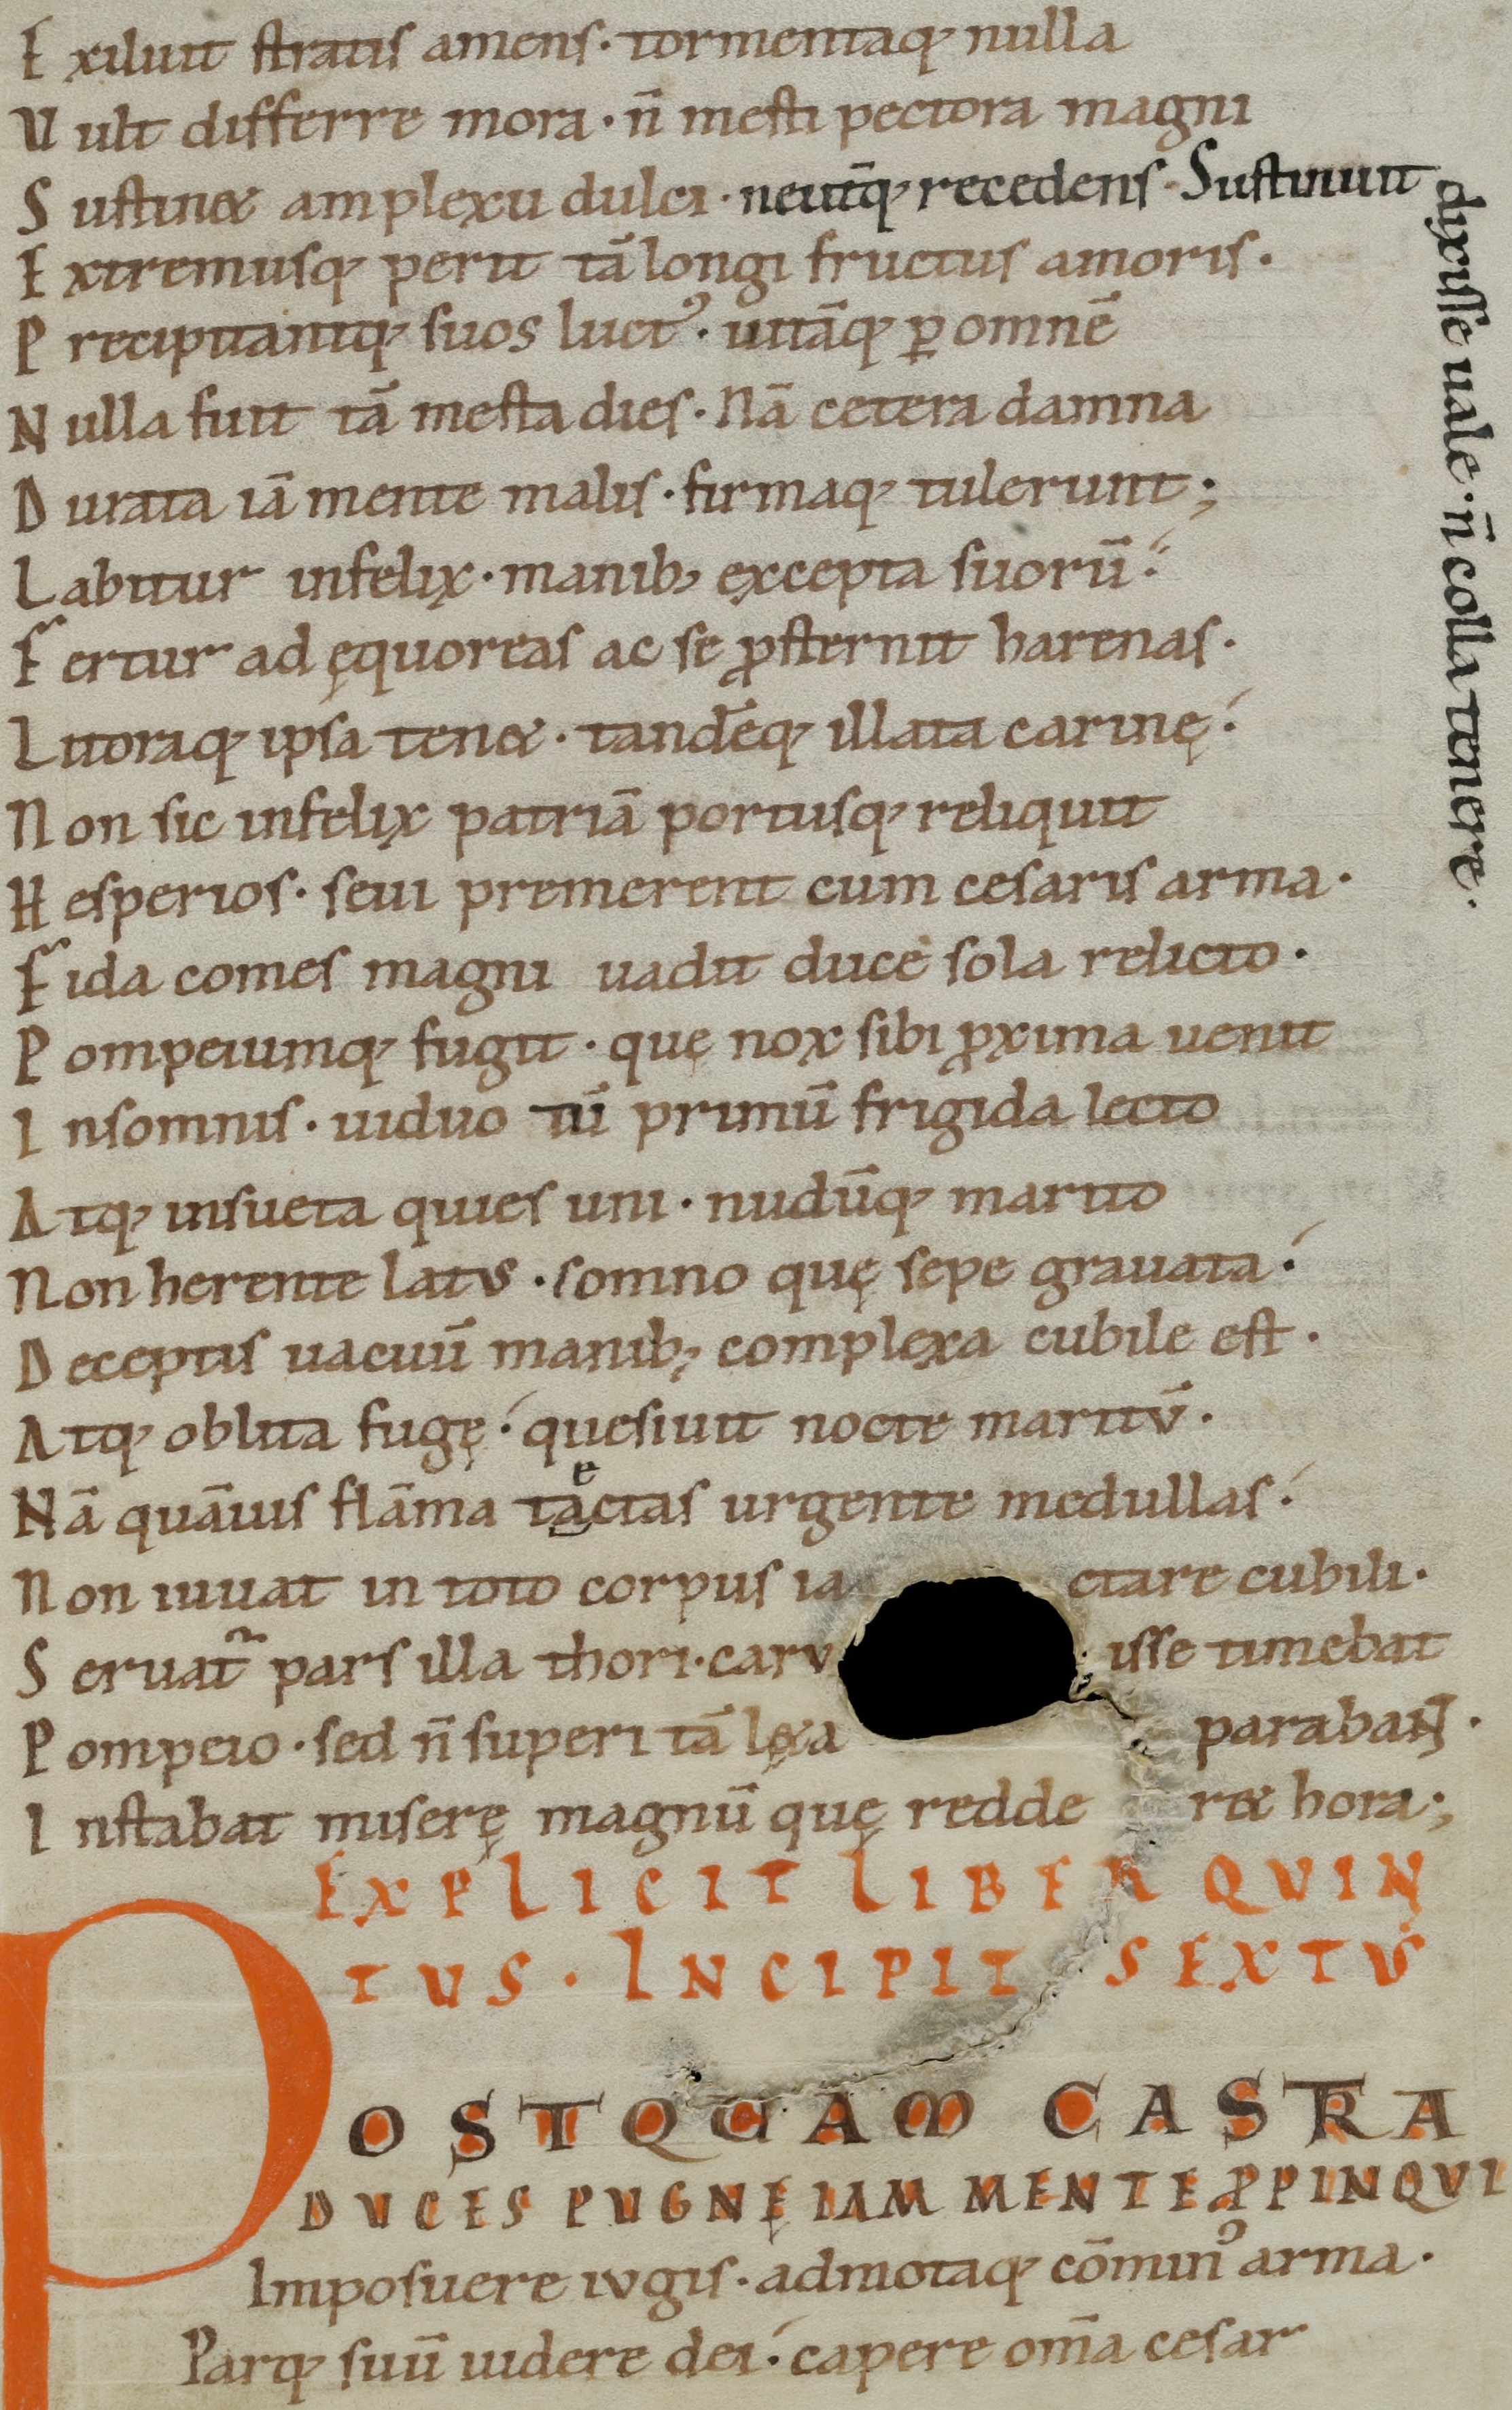 E xiluit stratis amens· tormentaq; nulla
U ult differre mora· n̄ mesti pectora magni
S ustin& amplexu dulci· neutrāq; recedens· Sustinuit
dixisse uale· n̄ colla tenere·
E xtremusq; perit tā longi fructus amoris·
P recipitantq; suos luct᾿· uitāq; ꝑ omnē
N ulla fuit tā mesta dies· Nā cetera damna
D urata iā mente malis· firmaq; tulerunt;
L abitur infelix· manib; excepta suorū·
F ertur ad ęquoreas ac se ꝓsternit harenas·
L itoraq; ipsa ten&· tandēq; illata carinę·
N on sic infelix patriā portusq; reliquit
H esperios· seui premerent cum cesaris arma·
F ida comes magni uadit duce sola relicto·
P ompeiumq; fugit· quę nox sibi ꝓxima uenit
I nsomnis· uiduo tū primū frigida lecto
A tq; insueta quies uni· nudūq; marito
N on herente latus· somno quę sepe grauata·
D eceptis uacuū manib; complexa cubile est·
A tq; oblita fugę· quesiuit nocte maritū·
N ā quāuis flāma tactas urgente medullas·
e
N on iuuat in toto corpus ia ctare cubili·
S eruat᷑ pars illa thori· caru isse timebat
P ompeio· sed n̄ superi tā lęxa parabant·
I nstabat miserę magnū quę redde r& hora;
EXPLICIT LIBER QVIN
TUS· INCIPIT SEXTVS
POSTQUAM CASTRA
DVCES PUGNĘ IAM MENTE ꝒPINQVI
Imposuere iugis· admotaq; cōmin᾿ arma·
Parq; suū uidere dei· capere om̄a cesar